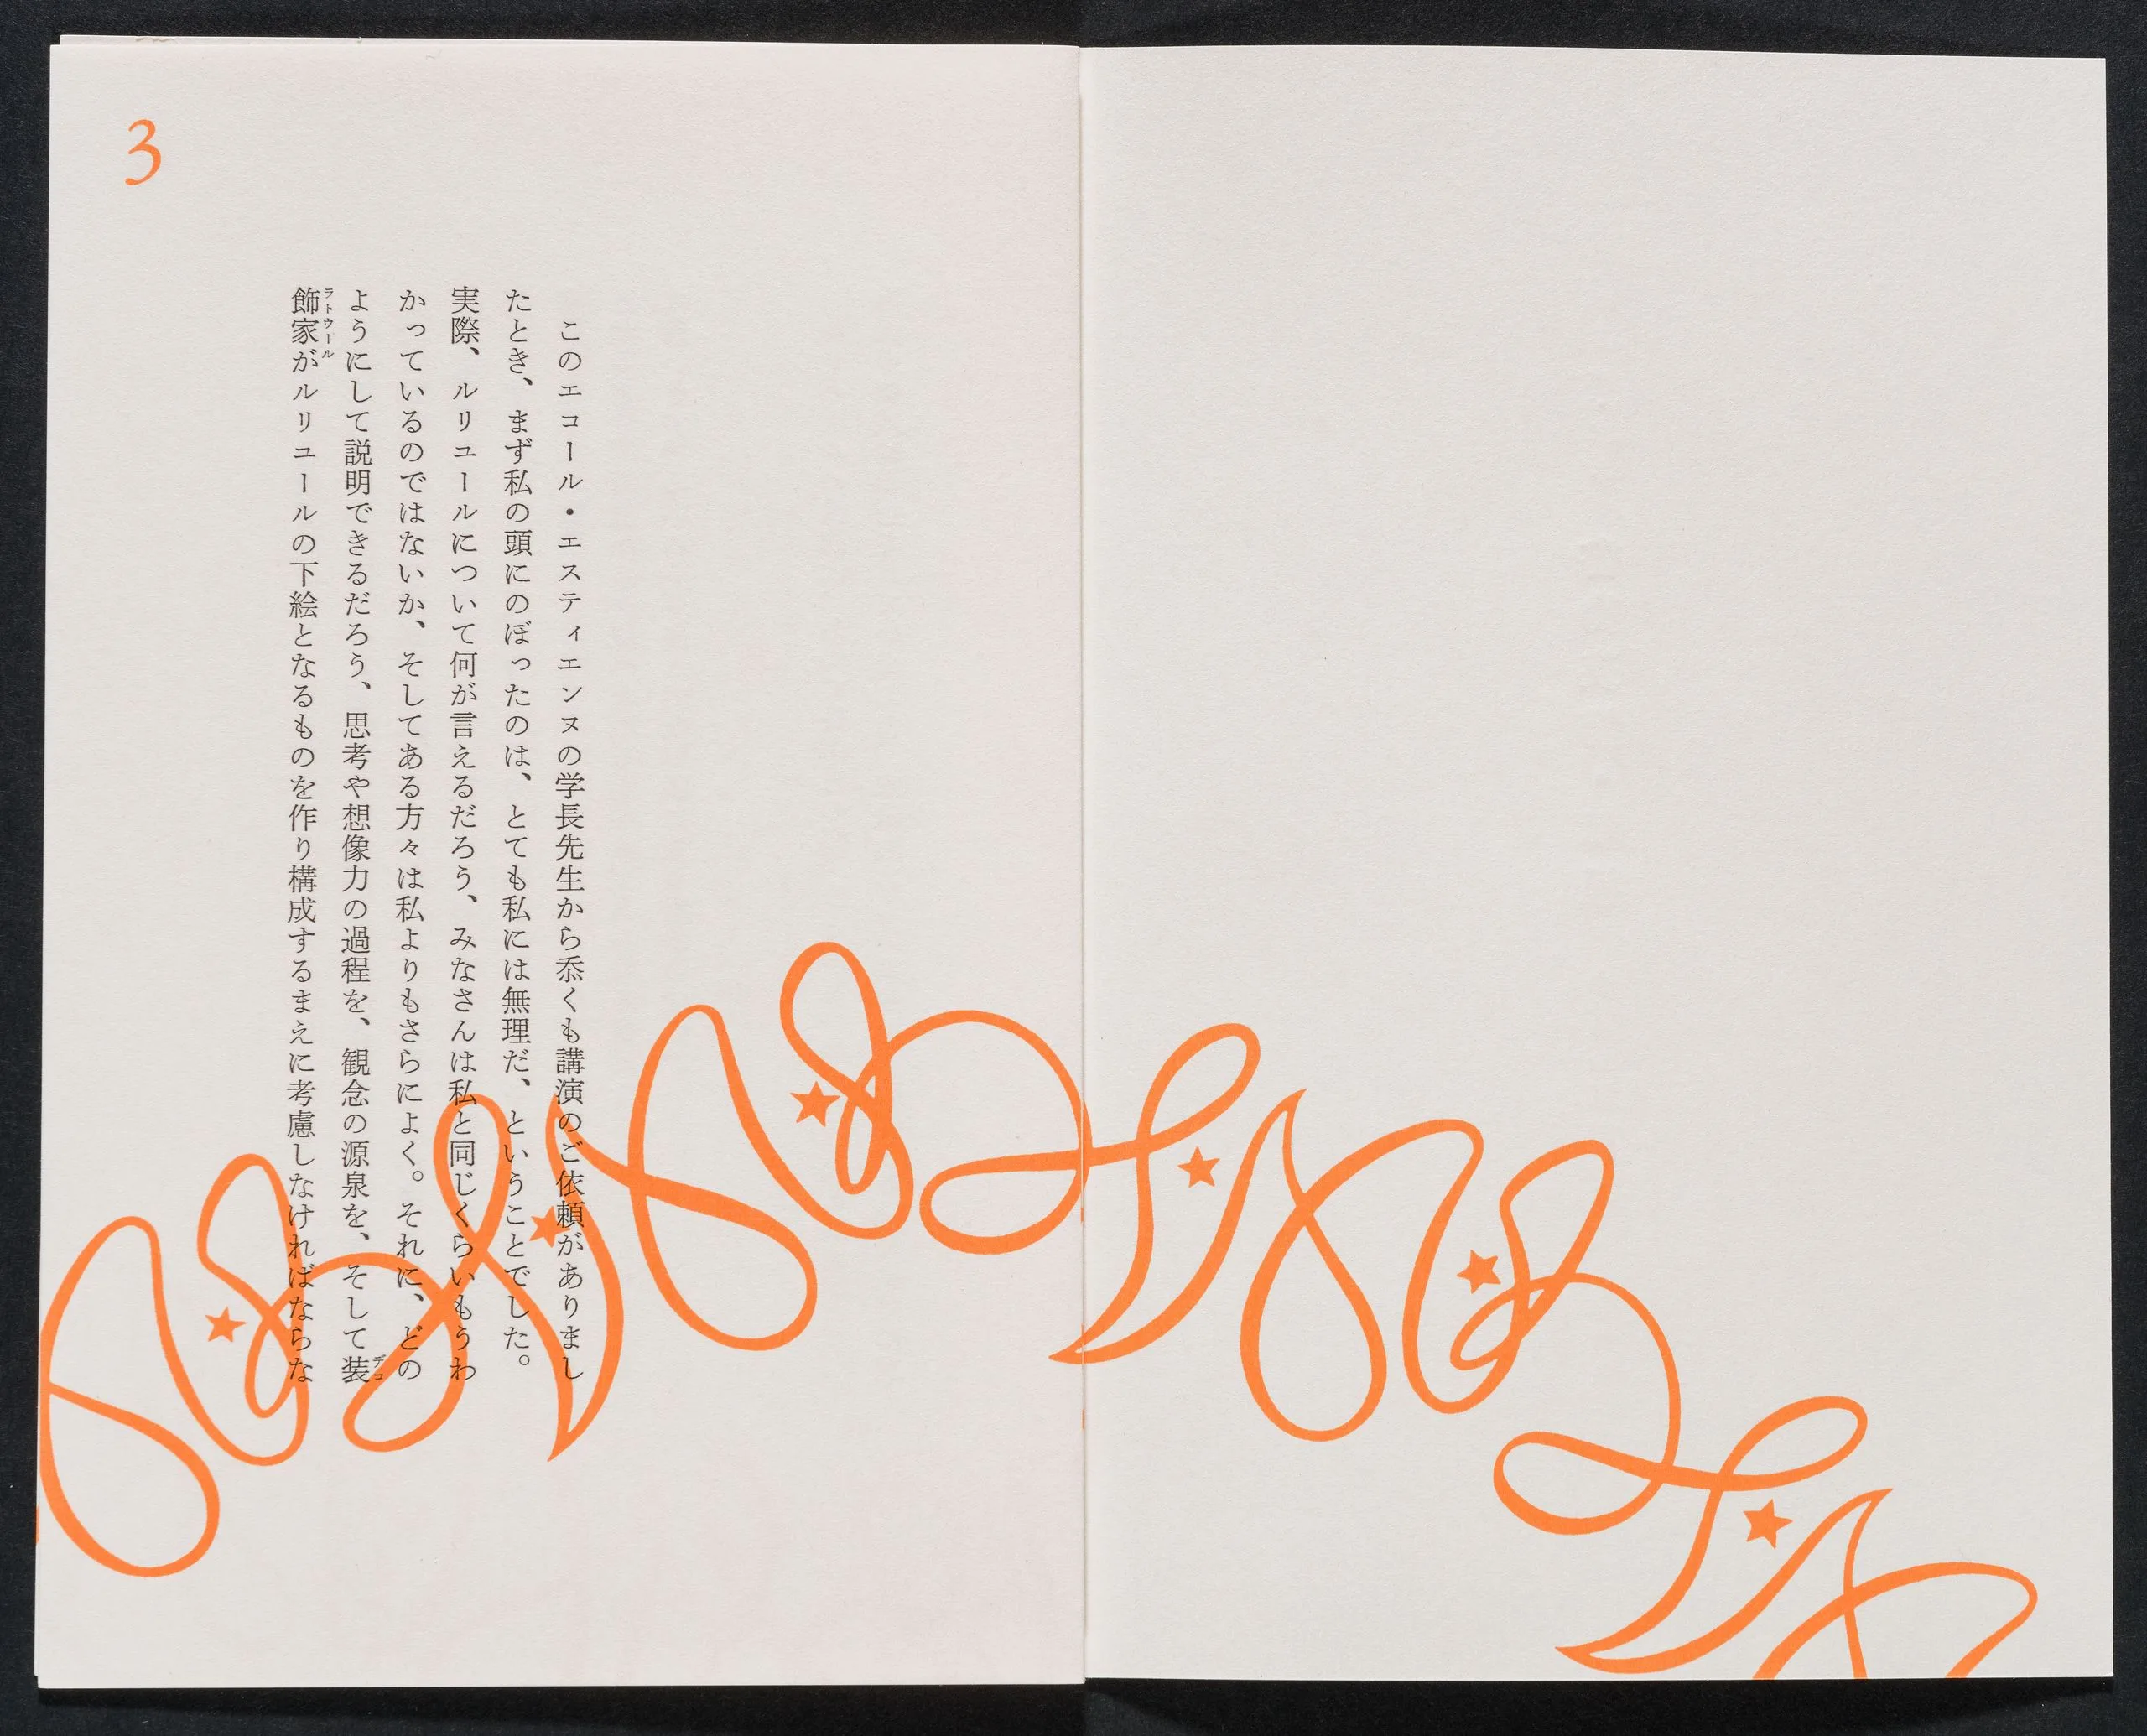 このエコール・エスティエンヌの学長先生から忝くも講演のご依頼がありまし
たとき、まず私の頭にのぼったのは、とても私には無理だ、ということでした。
実際、ルリユールについて何が言えるだろう、みなさんは私と同じくらいもうわ
かっているのではないか、そしてある方々は私よりもさらによく。それに、どの
ようにして説明できるだろう、思考や想像力の過程を、観念の源泉を、そして装
デコ
飾家がルリユールの下絵となるものを作り構成するまえに考慮しなければならな
ラトウール
3